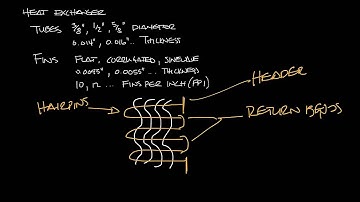 HEAT EXCHANGER
TUBES 3/8", 1/2", 5/8" DIAMETER
0.014", 0.016" ... THICKNESS
FINS FLAT, CORRUGATED, SINEWAVE
0.0055" ... THICKNESS
10, 12 ... FINS PER INCH (FPI)
HEADER
HAIRPINS
RETURN BENDS